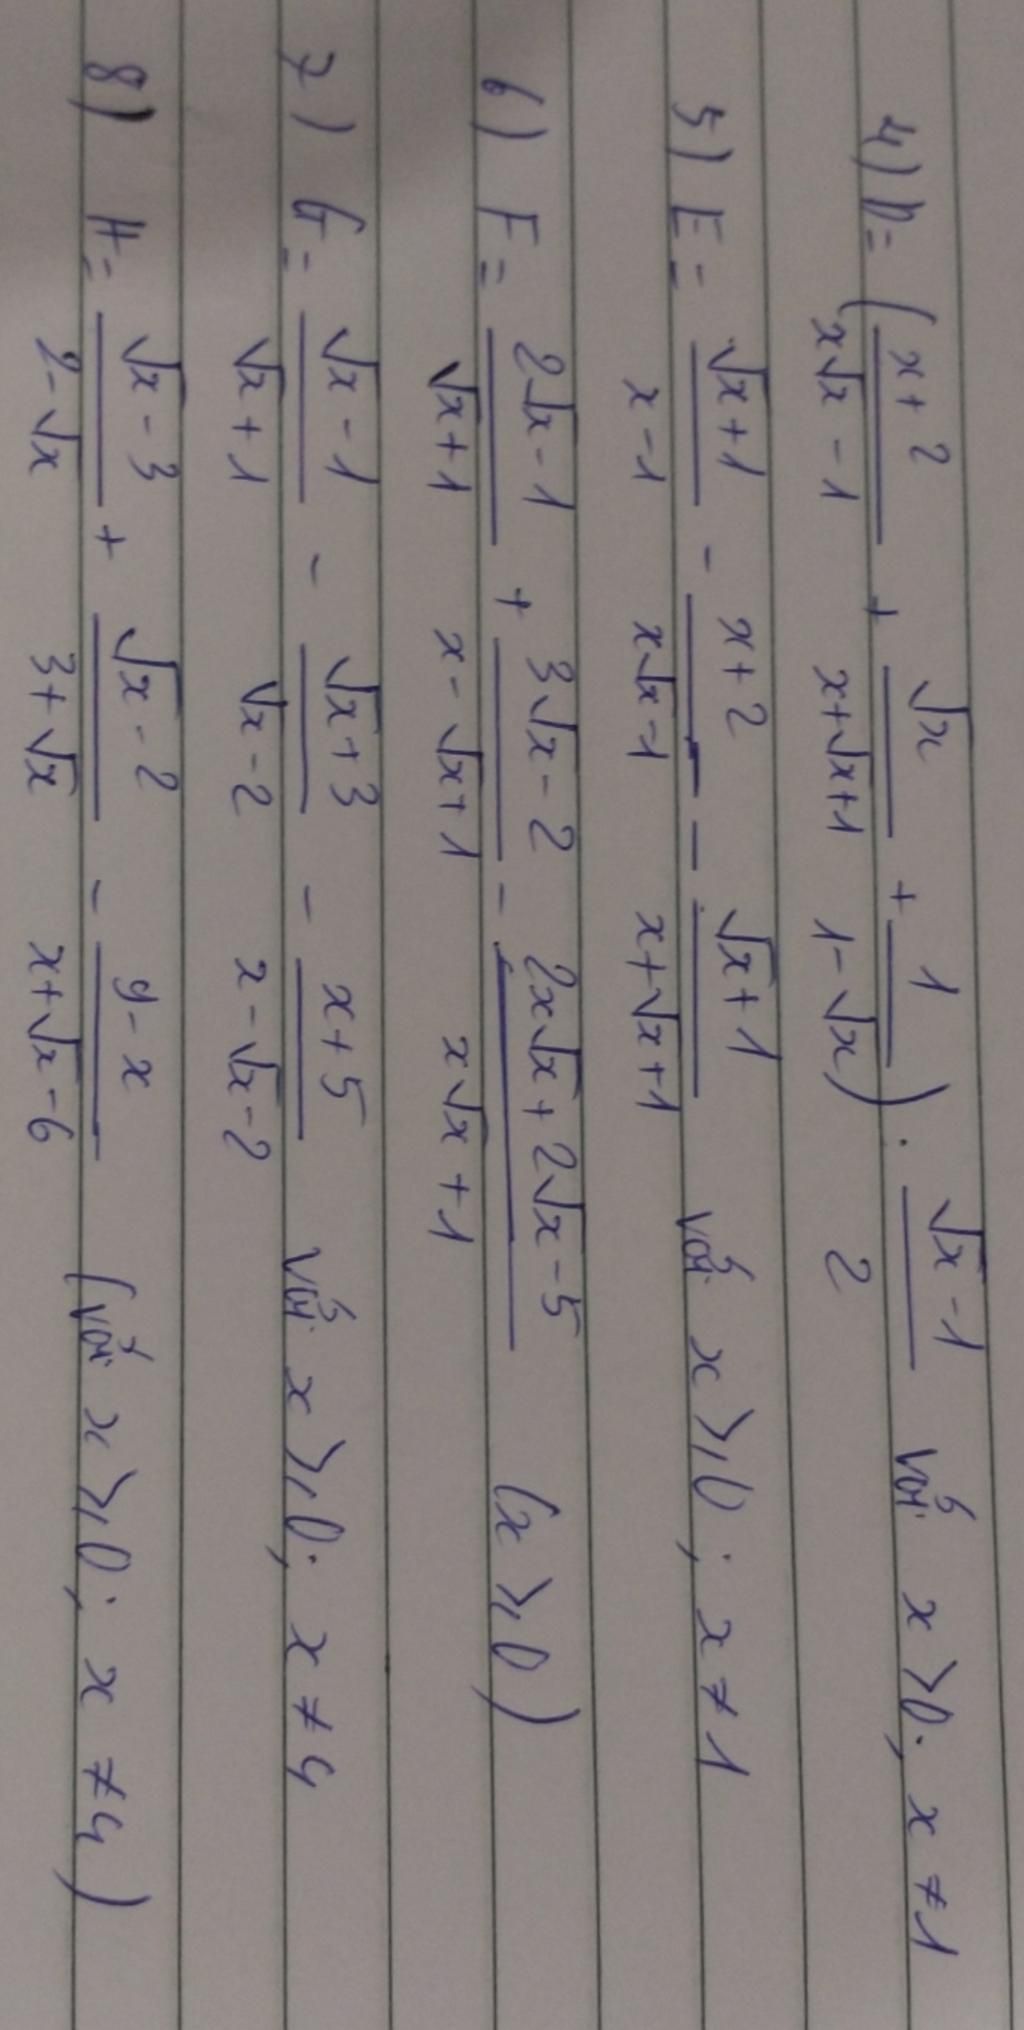 4) D = (\frac{x+2}{x\sqrt{x}-1} + \frac{\sqrt{x}}{x+\sqrt{x}+1} + \frac{1}{1-\sqrt{x}}) . \frac{\sqrt{x}-1}{2} với x > 0; x ≠ 1
5) E = \frac{\sqrt{x}+1}{x-1} - \frac{x+2}{x\sqrt{x}-1} - \frac{\sqrt{x}+1}{x+\sqrt{x}+1} với x ⩾ 0; x ≠ 1
6) F = \frac{2\sqrt{x}-1}{\sqrt{x}+1} + \frac{3\sqrt{x}-2}{x-\sqrt{x}+1} - \frac{2x\sqrt{x}+2\sqrt{x}-5}{x\sqrt{x}+1} (x ⩾ 0)
7) G = \frac{\sqrt{x}-1}{\sqrt{x}+1} - \frac{\sqrt{x}+3}{\sqrt{x}-2} - \frac{x+5}{x-\sqrt{x}-2} với x ⩾ 0; x ≠ 4
8) H = \frac{\sqrt{x}-3}{2-\sqrt{x}} + \frac{\sqrt{x}-2}{3+\sqrt{x}} - \frac{9-x}{x+\sqrt{x}-6} (với x ⩾ 0; x ≠ 4)